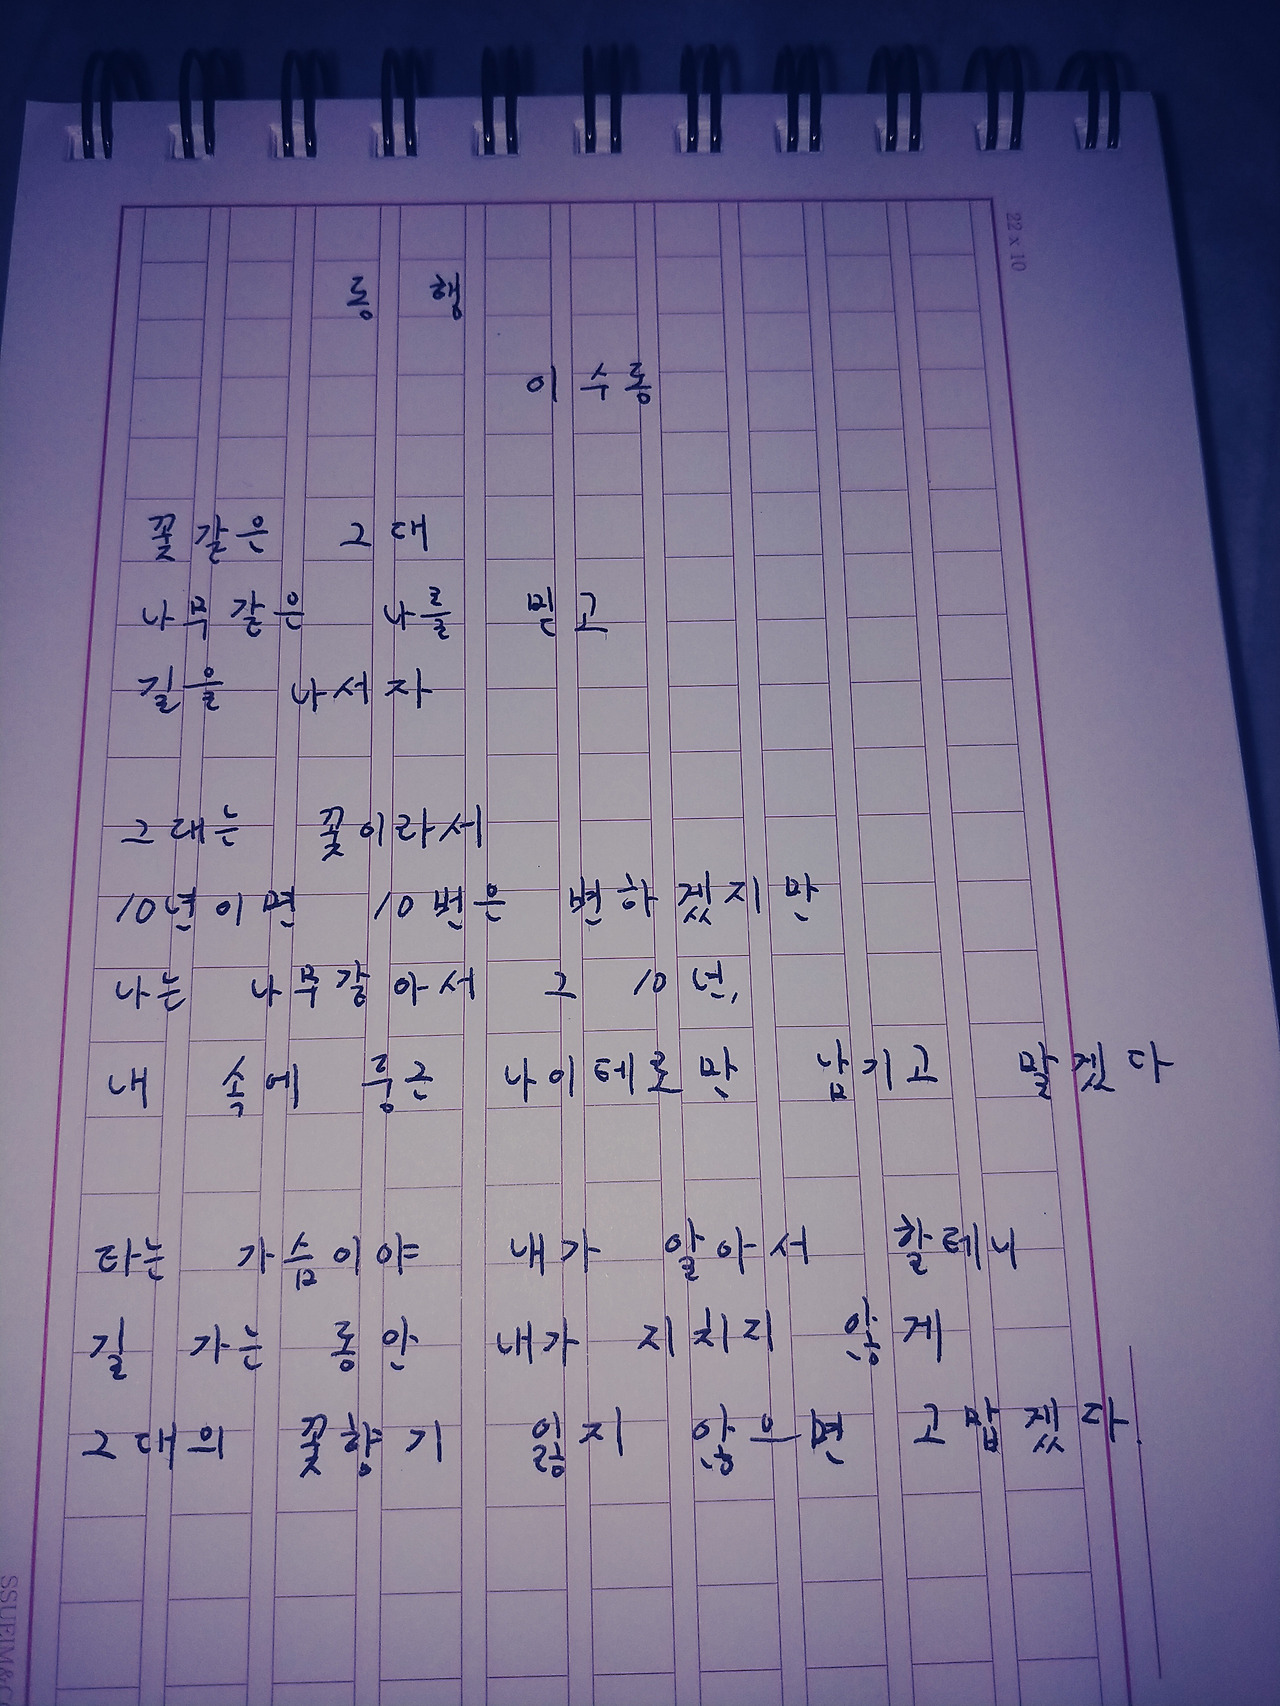 동행
이수동
꽃같은 그대
나무같은 나를 믿고
길을 나서자
그대는 꽃이라서
10년이면 10번은 변하겠지만
나는 나무같아서 그 10년,
내 속에 둥근 나이테로만 남기고 말겠다
타는 가슴이야 내가 알아서 할테니
길 가는 동안 내가 지치지 않게
그대의 꽃향기 잃지 않으면 고맙겠다.
22 x 10